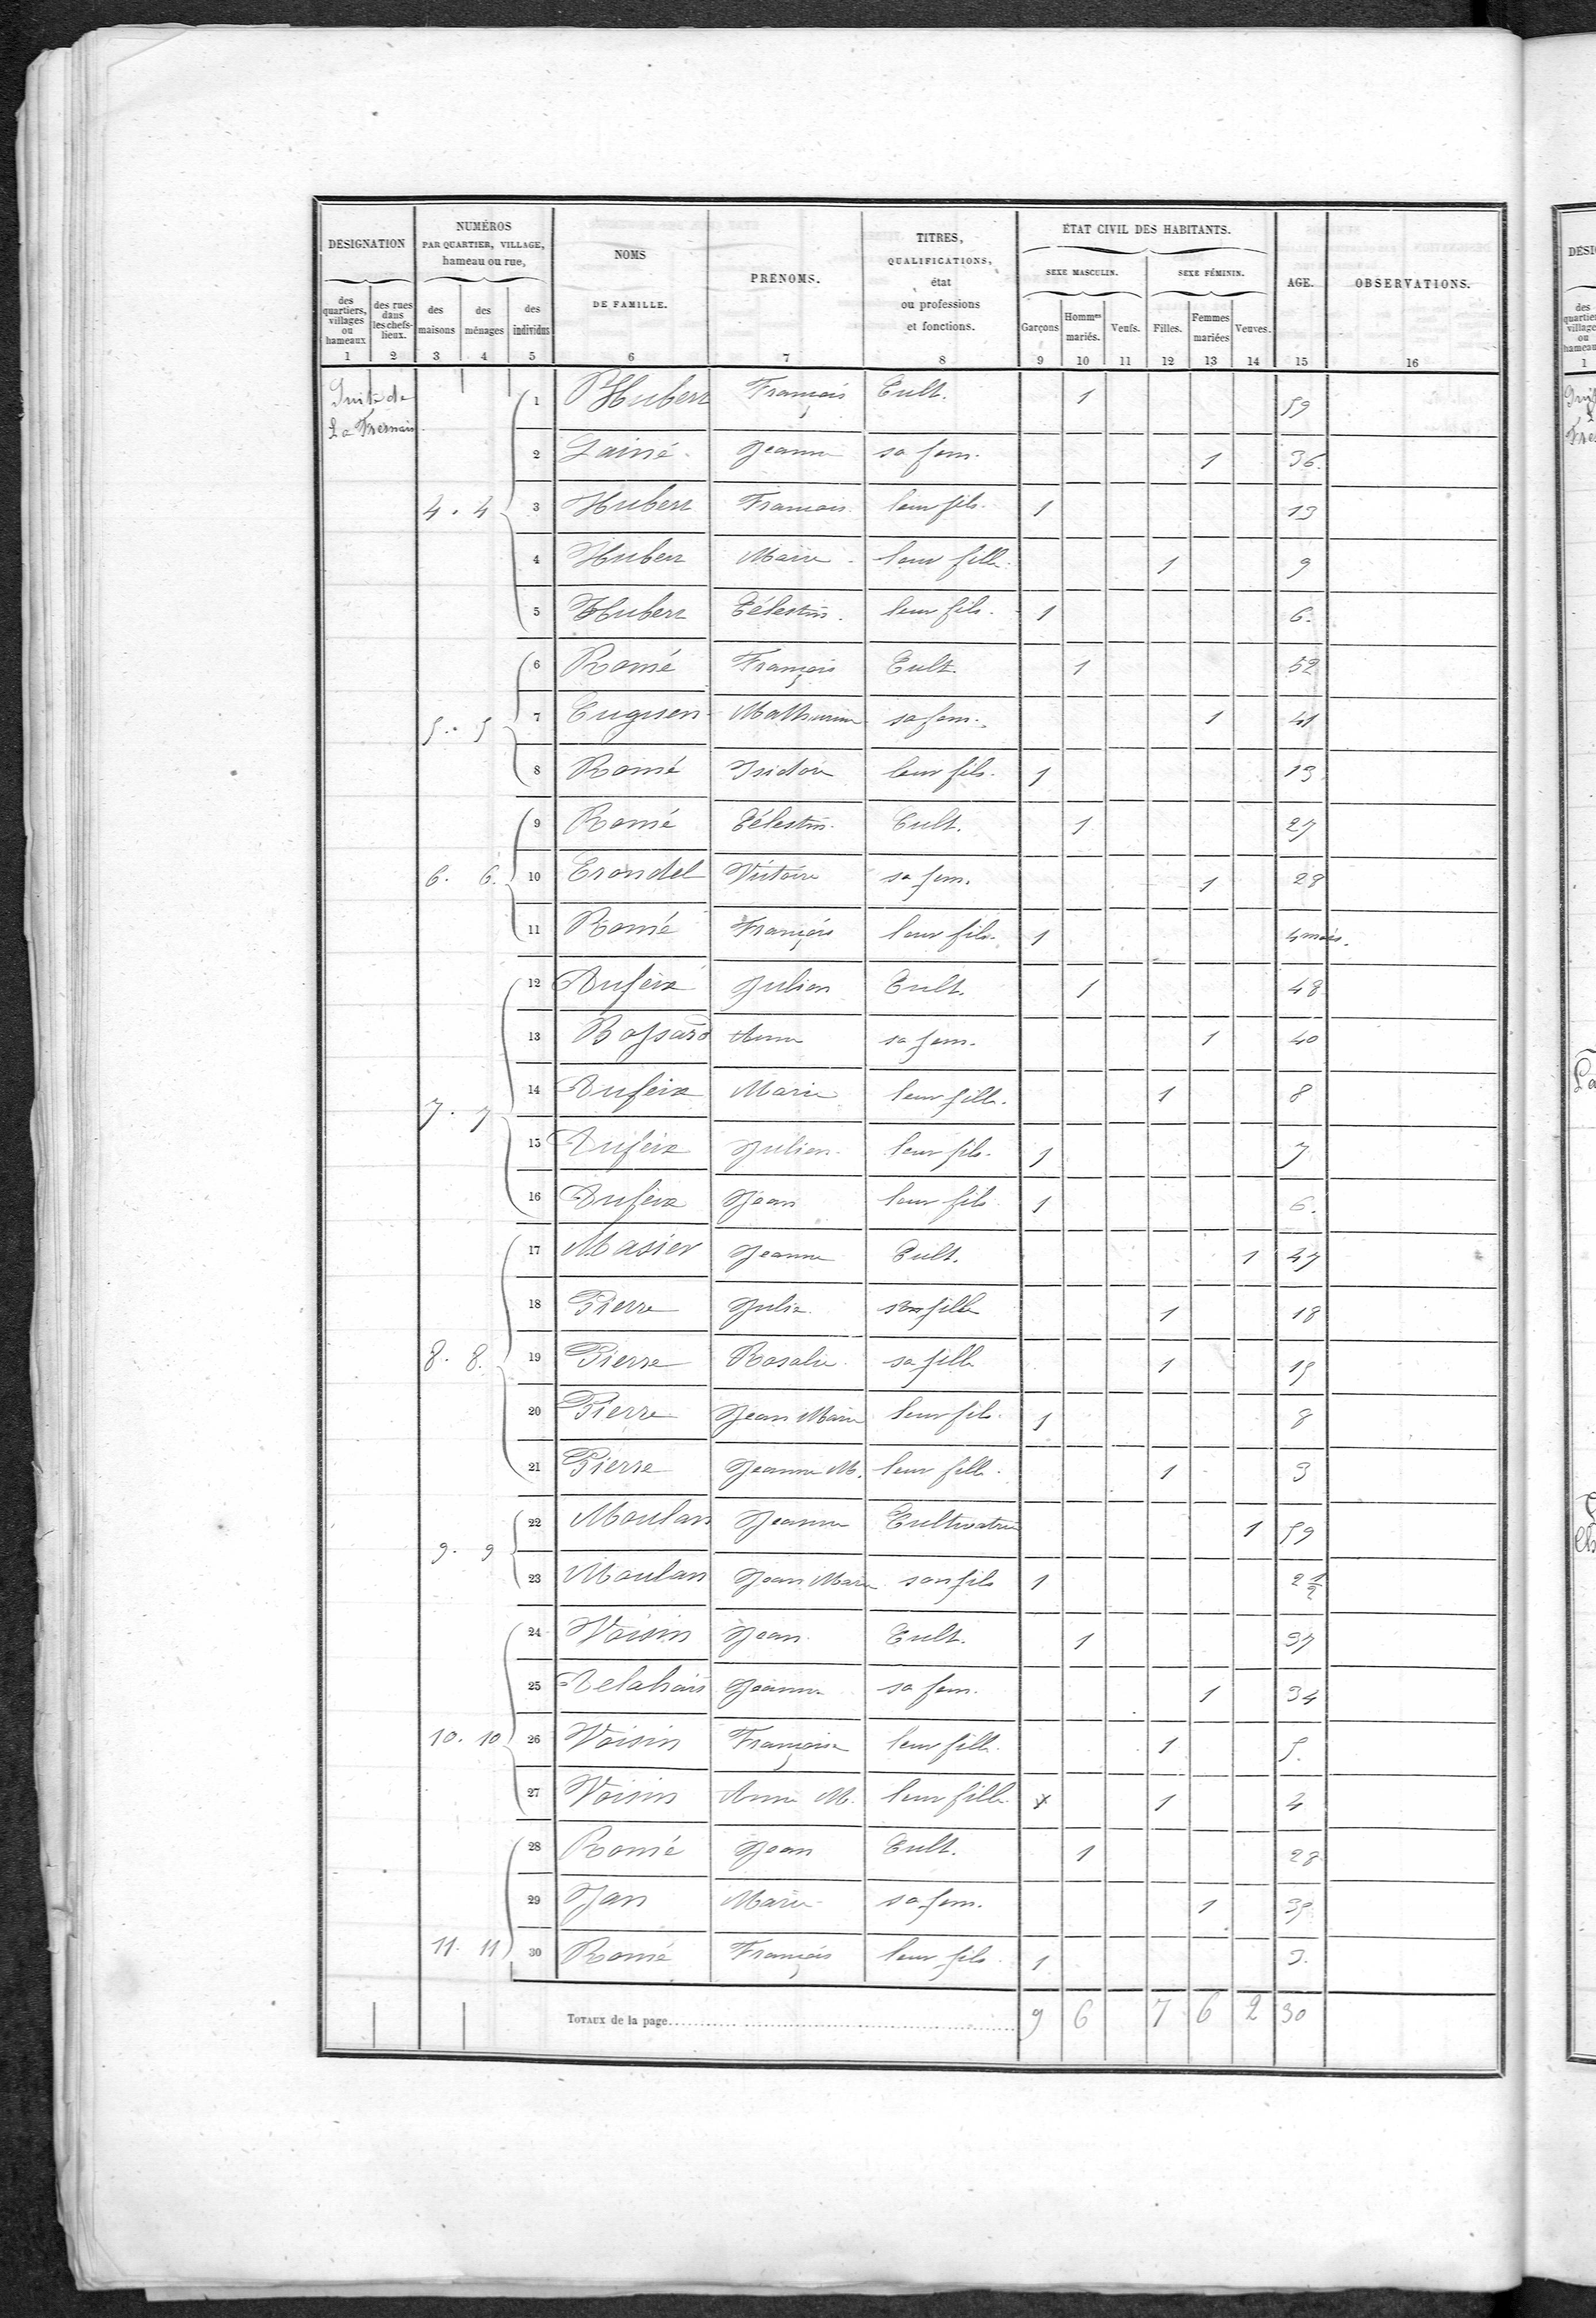 DESIGNATION
NUMÉROS
PAR QUARTIER, VILLAGE,
hameau ou rue,
NOMS
DE FAMILLE.
PRÉNOMS.
TITRES,
QUALIFICATIONS,
état
ou professions
et fonctions.
ÉTAT CIVIL DES HABITANTS.
SEXE MASCULIN. SEXE FÉMININ.
AGE.
OBSERVATIONS.
des quartiers, villages ou hameaux
des rues dans les chefs-lieux.
des maisons
des ménages
des individus
Garçons
Hommes mariés.
Veufs.
Filles.
Femmes mariées
Veuves.
1 2 3 4 5 6 7 8 9 10 11 12 13 14 15 16
Suite de
La Fresnais
1 Hubert François Cult. 1 59
2 Lainé Jeanne sa fem. 1 36.
4. 4 3 Hubert François leur fils. 1 13
4 Hubert Marie leur fille. 1 9
5 Hubert Célestin. leur fils. 1 6.
6 Romé François Cult. 1 52
5. 5 7 Cuguen Mathurine sa fem. 1 41
8 Romé Isidore leur fils. 1 13
9 Romé Célestin. Cult. 1 27
6. 6. 10 Erondel Victoire sa fem. 1 28
11 Romé François leur fils. 1 4 mois.
12 Dufeix Julien Cult. 1 48
13 Bossard Anne sa fem. 1 40
7. 7 14 Dufeix Marie leur fille. 1 8
15 Dufeix Julien leur fils. 1 7
16 Dufeix Jean leur fils 1 6.
17 Masier Jeanne Cult. 1 47
18 Pierre Julie fille 1 18
8. 8. 19 Pierre Rosalie sa fille 1 15
20 Pierre Jean Marie leur fils. 1 8
21 Pierre Jeanne M. leur fille. 1 3
22 Moulan Jeanne Cultivatrice 1 59
9. 9 23 Moulan Jean Marie son fils 1 2 1/2
24 Voisin Jean Cult. 1 37
25 Delahais Jeanne sa fem. 1 34
10. 10 26 Voisin Françoise leur fille. 1 5.
27 Voisin Anne M. leur fille 1 4
28 Romé Jean Cult. 1 28
29 Jan Marie sa fem. 1 35
11. 11 30 Romé François leur fils. 1 3.
TOTAUX de la page 9 6 7 6 2 30